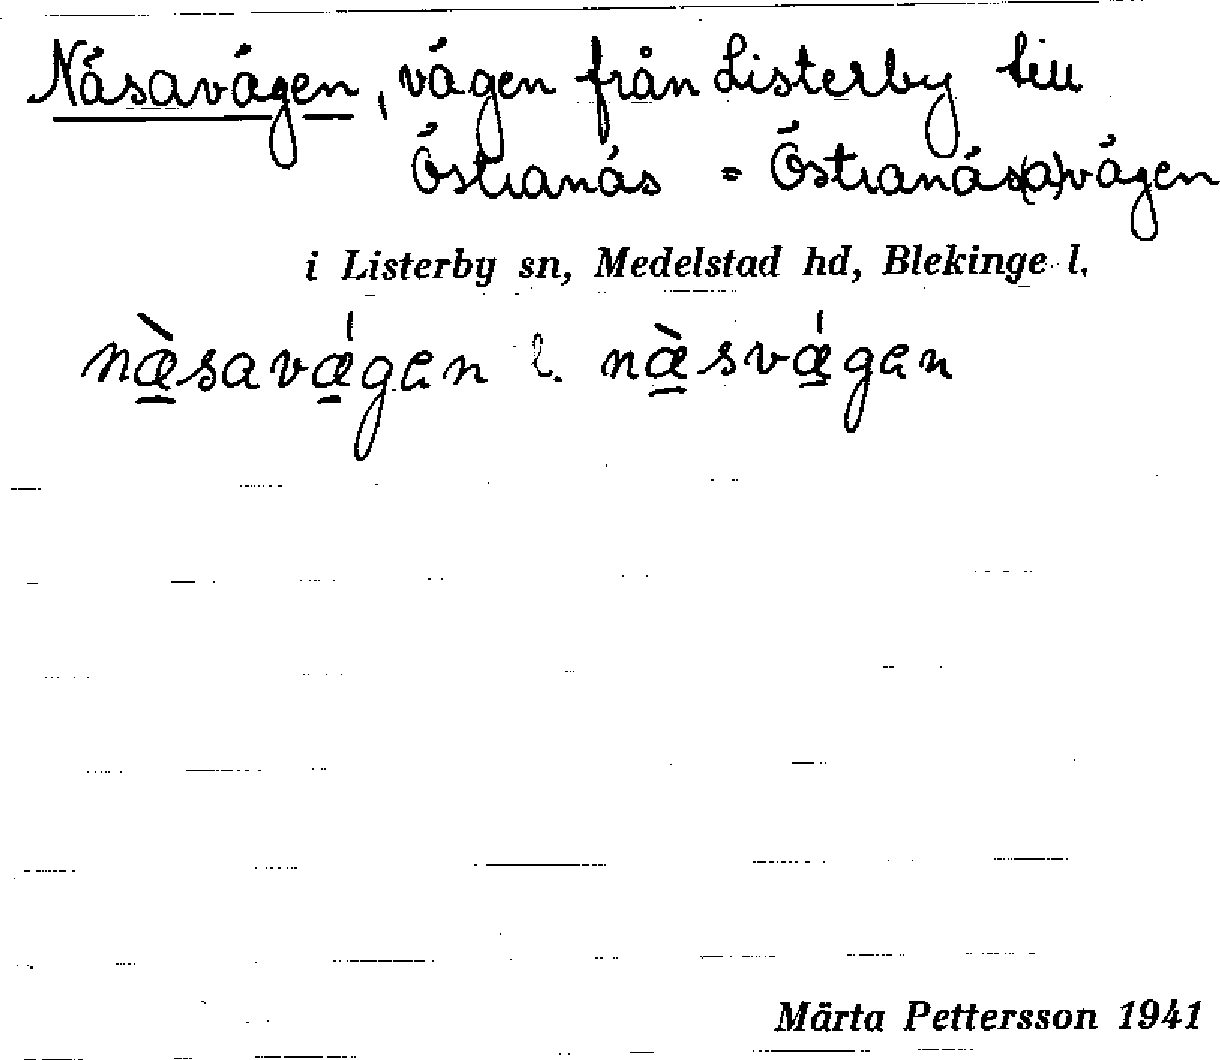 Näsavägen, vägen från Listerby till
Östranäs = Östranäs(a)vägen
i Listerby sn, Medelstad hd, Blekinge l.
næ̀savǽgen l. næ̀svǽgen
Märta Pettersson 1941